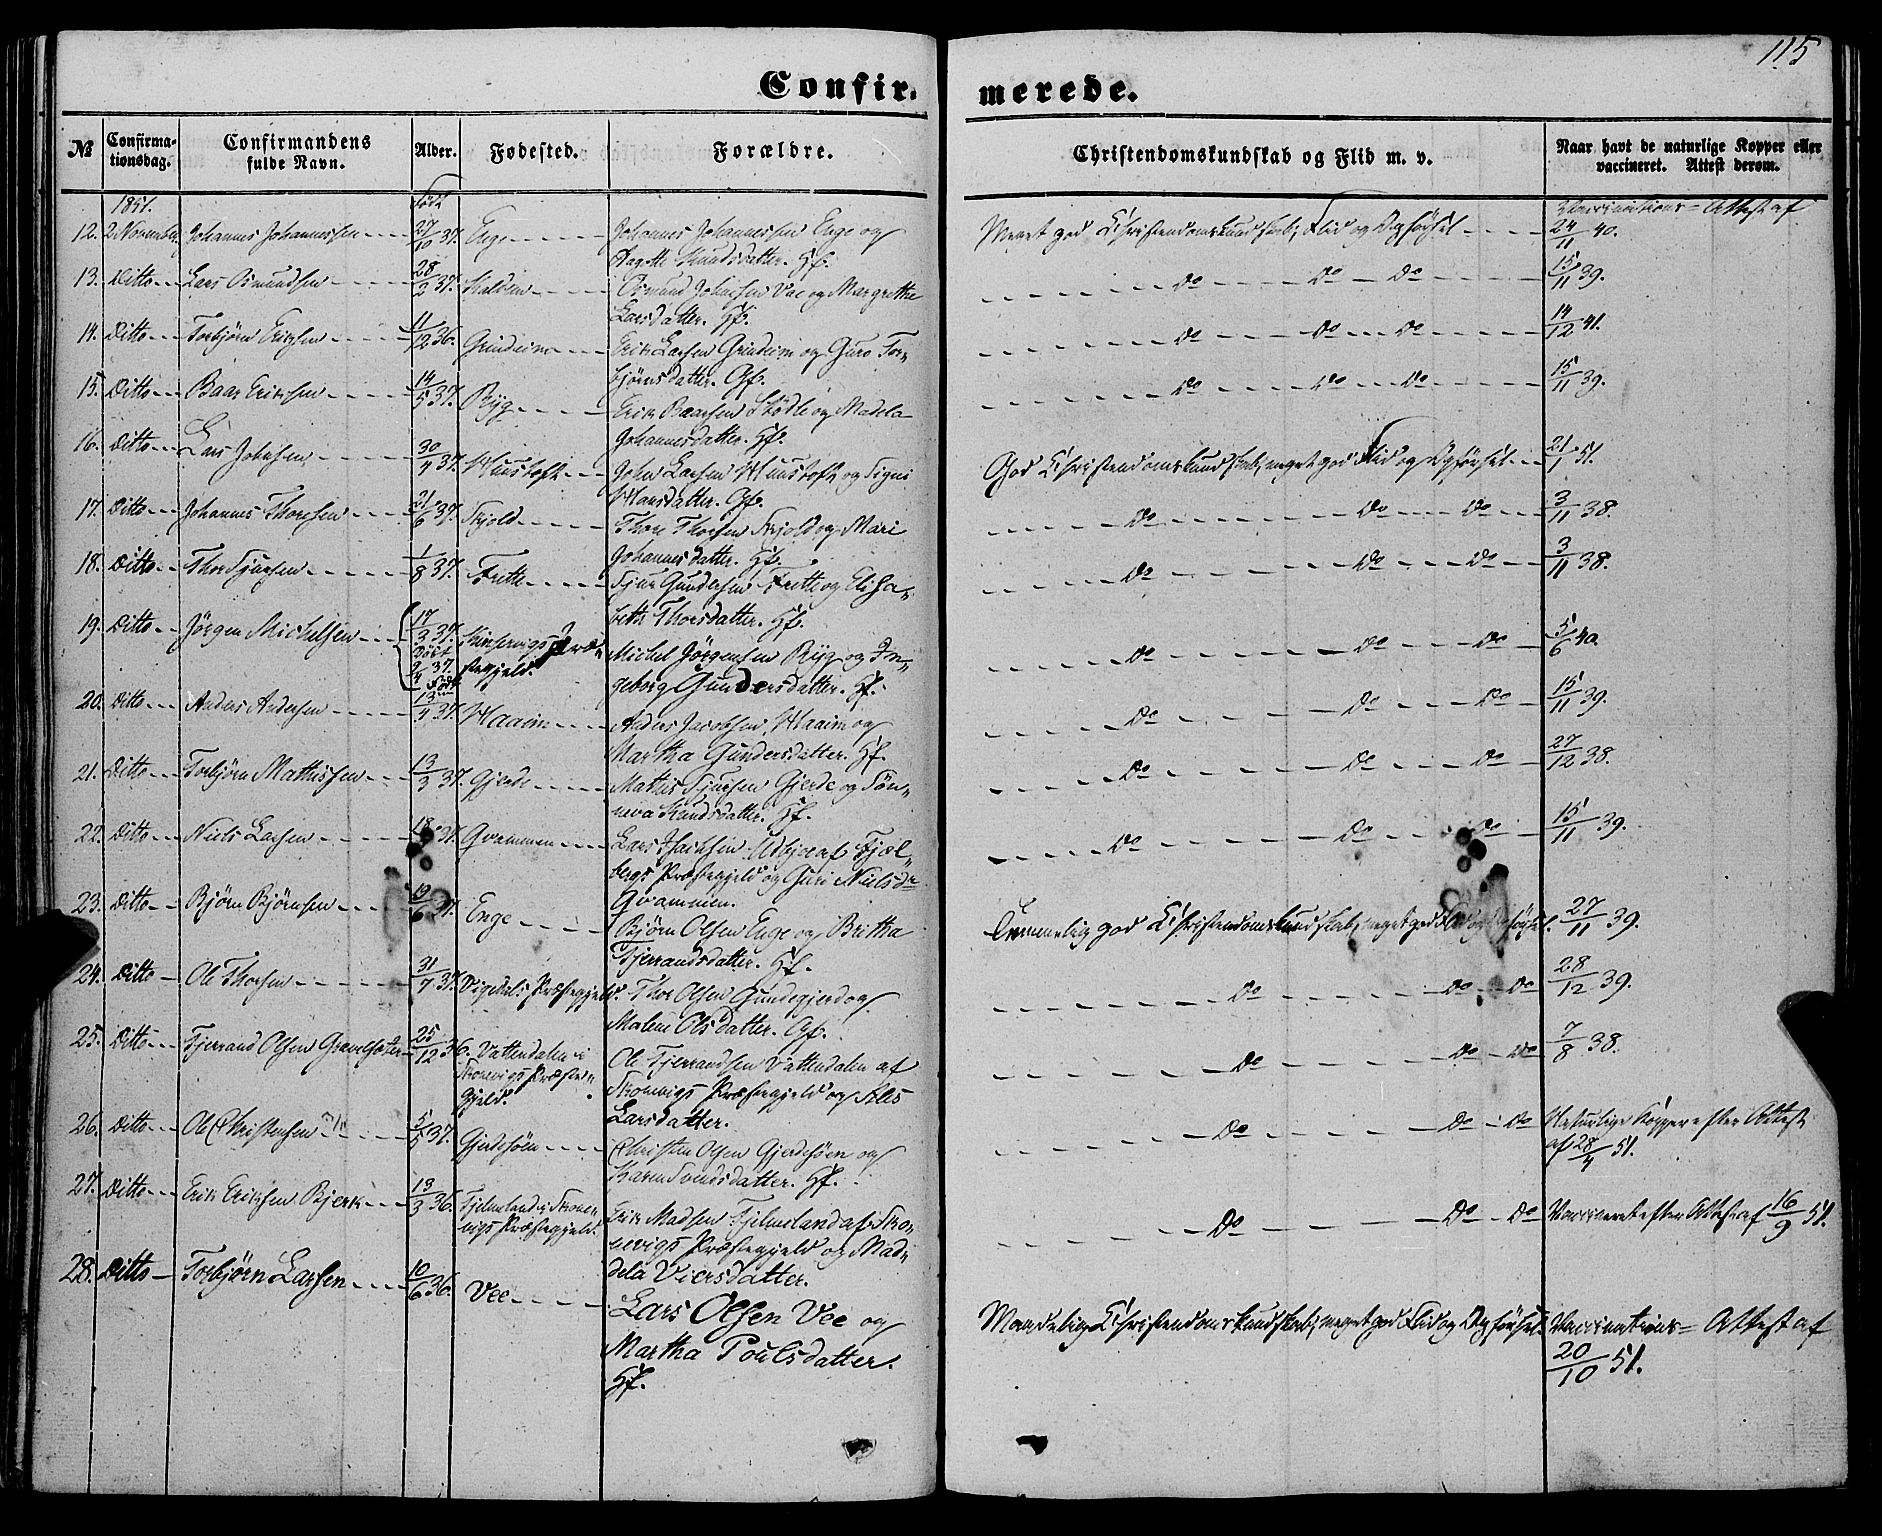 115
Confir-
merede.
№
Confirma-
tionsdag.
Confirmandens
fulde Navn.
Alder.
Fødested.
Forældre.
Christendomskundskab og Flid m. v.
Naar havt de naturlige Kopper eller
vaccineret. Attest derom.
1851.
Født
12. 2 November Johannes Johannessen 27/10 37. Enge Johannes Johannessen Enge og
Knudsdatter. Gf.
Meget god Christendomskundskab, Flid og Opførsel Vaccinations= Attest af
24/11 40.
13. Ditto Lars Osmundsen 28/2 37. Osmund Johnsen Vae og Margrethe
Larsdatter. Gf.
do do do 15/11 39.
14. Ditto Torbjørn Eriksen 11/12 36. Grindeim Erik Larsen Grindeim og Guro Tor=
bjørnsdatter. Gf.
do do do 14/12 41.
15. Ditto Baar Eriksen 14/5 37. Ryg Erik Baarsen Stødle og Madela
Johannesdatter. Gf.
do do do 15/11 39.
16. Ditto Lars Johnsen 30/4 37. Huustoft John Larsen Huustoft og Signi
Hansdatter. Gf.
God Christendomskundskab, meget god Flid og Opførsel 21/1 51.
17. Ditto Johannes Thoresen 21/6 37. Skjold Thore Thorsen Skjold og Mari
Johannesdatter. Gf.
do do do 3/11 38.
18. Ditto Thor Sjursen 1/8 37. Frette Sjur Gundersen Frette og Elisa=
beth Thorsdatter. Gf.
do do do 3/11 38.
19. Ditto Jørgen Michelsen 17/3 37. Døbt 2/4 37. Kinservigs Præ=
stegjeld. Michel Jørgensen Ryg og In=
geborg Gundersdatter. Gf.
do do do 5/6 40.
20. Ditto Anders Andersen Født 13/4 37. Haaim Anders Jacobsen Haaim og
Martha Gundersdatter. Gf.
do do do 15/11 39.
21. Ditto Torbjørn Mathissen 13/3 37. Gjerde Mathis Sjursen Gjerde og Søn=
neva Knudsdatter. Gf.
do do do 27/12 38.
22. Ditto Niels Larsen 18/ 37. Qvammen Lars Isaksen Udbjoe af Fjæl=
bergs Præstegjeld og Guri Nielsdr
Qvammen.
do do do 15/11 39.
23. Ditto Bjørn Bjørnsen 19/6 37. Enge Bjørn Olsen Enge og Britha
Fjerrandsdatter. Gf.
Temmelig god Christendomskundskab, meget god Flid og Opførsel. 27/11 39.
24. Ditto Ole Thorsen 31/7 37. Vigedals Præstegjeld. Thor Olsen Gundegjerd og
Malene Olsdatter. Gf.
do do do 28/12 39.
25. Ditto Fjerrand Olsen Gravelsæter 25/12 36. Vattendalen i
Skonevigs Præste=
gjeld. Ole Fjerrandsen Vattendalen af
Skonevigs Præstegjeld og Siles
Larsdatter.
do do do 7/8 38.
26. Ditto Ole Christensen 5/5 37. Gjerdesøen Christen Olsen Gjerdesøen og
Karen Svendsdatter. Gf.
do do do Naturlige Kopper efter Attest
af 28/4 51.
27. Ditto Erik Eriksen Bjerk 13/3 36. Fjelmeland i Skone=
vigs Præstegjeld. Erik Madsen Fjelmeland af Sko=
nevigs Præstegjeld og Mad=
dela Viersdatter.
do do do Vaccineret efter Attest af 16/9 51.
28. Ditto Torbjørn Larsen 10/6 36. Vee Lars Olsen Vee og
Martha Poulsdatter.
Gf.
Maadelig Christendomskundskab, meget god Flid og Opførsel Vaccinations= Attest af
20/10 51.